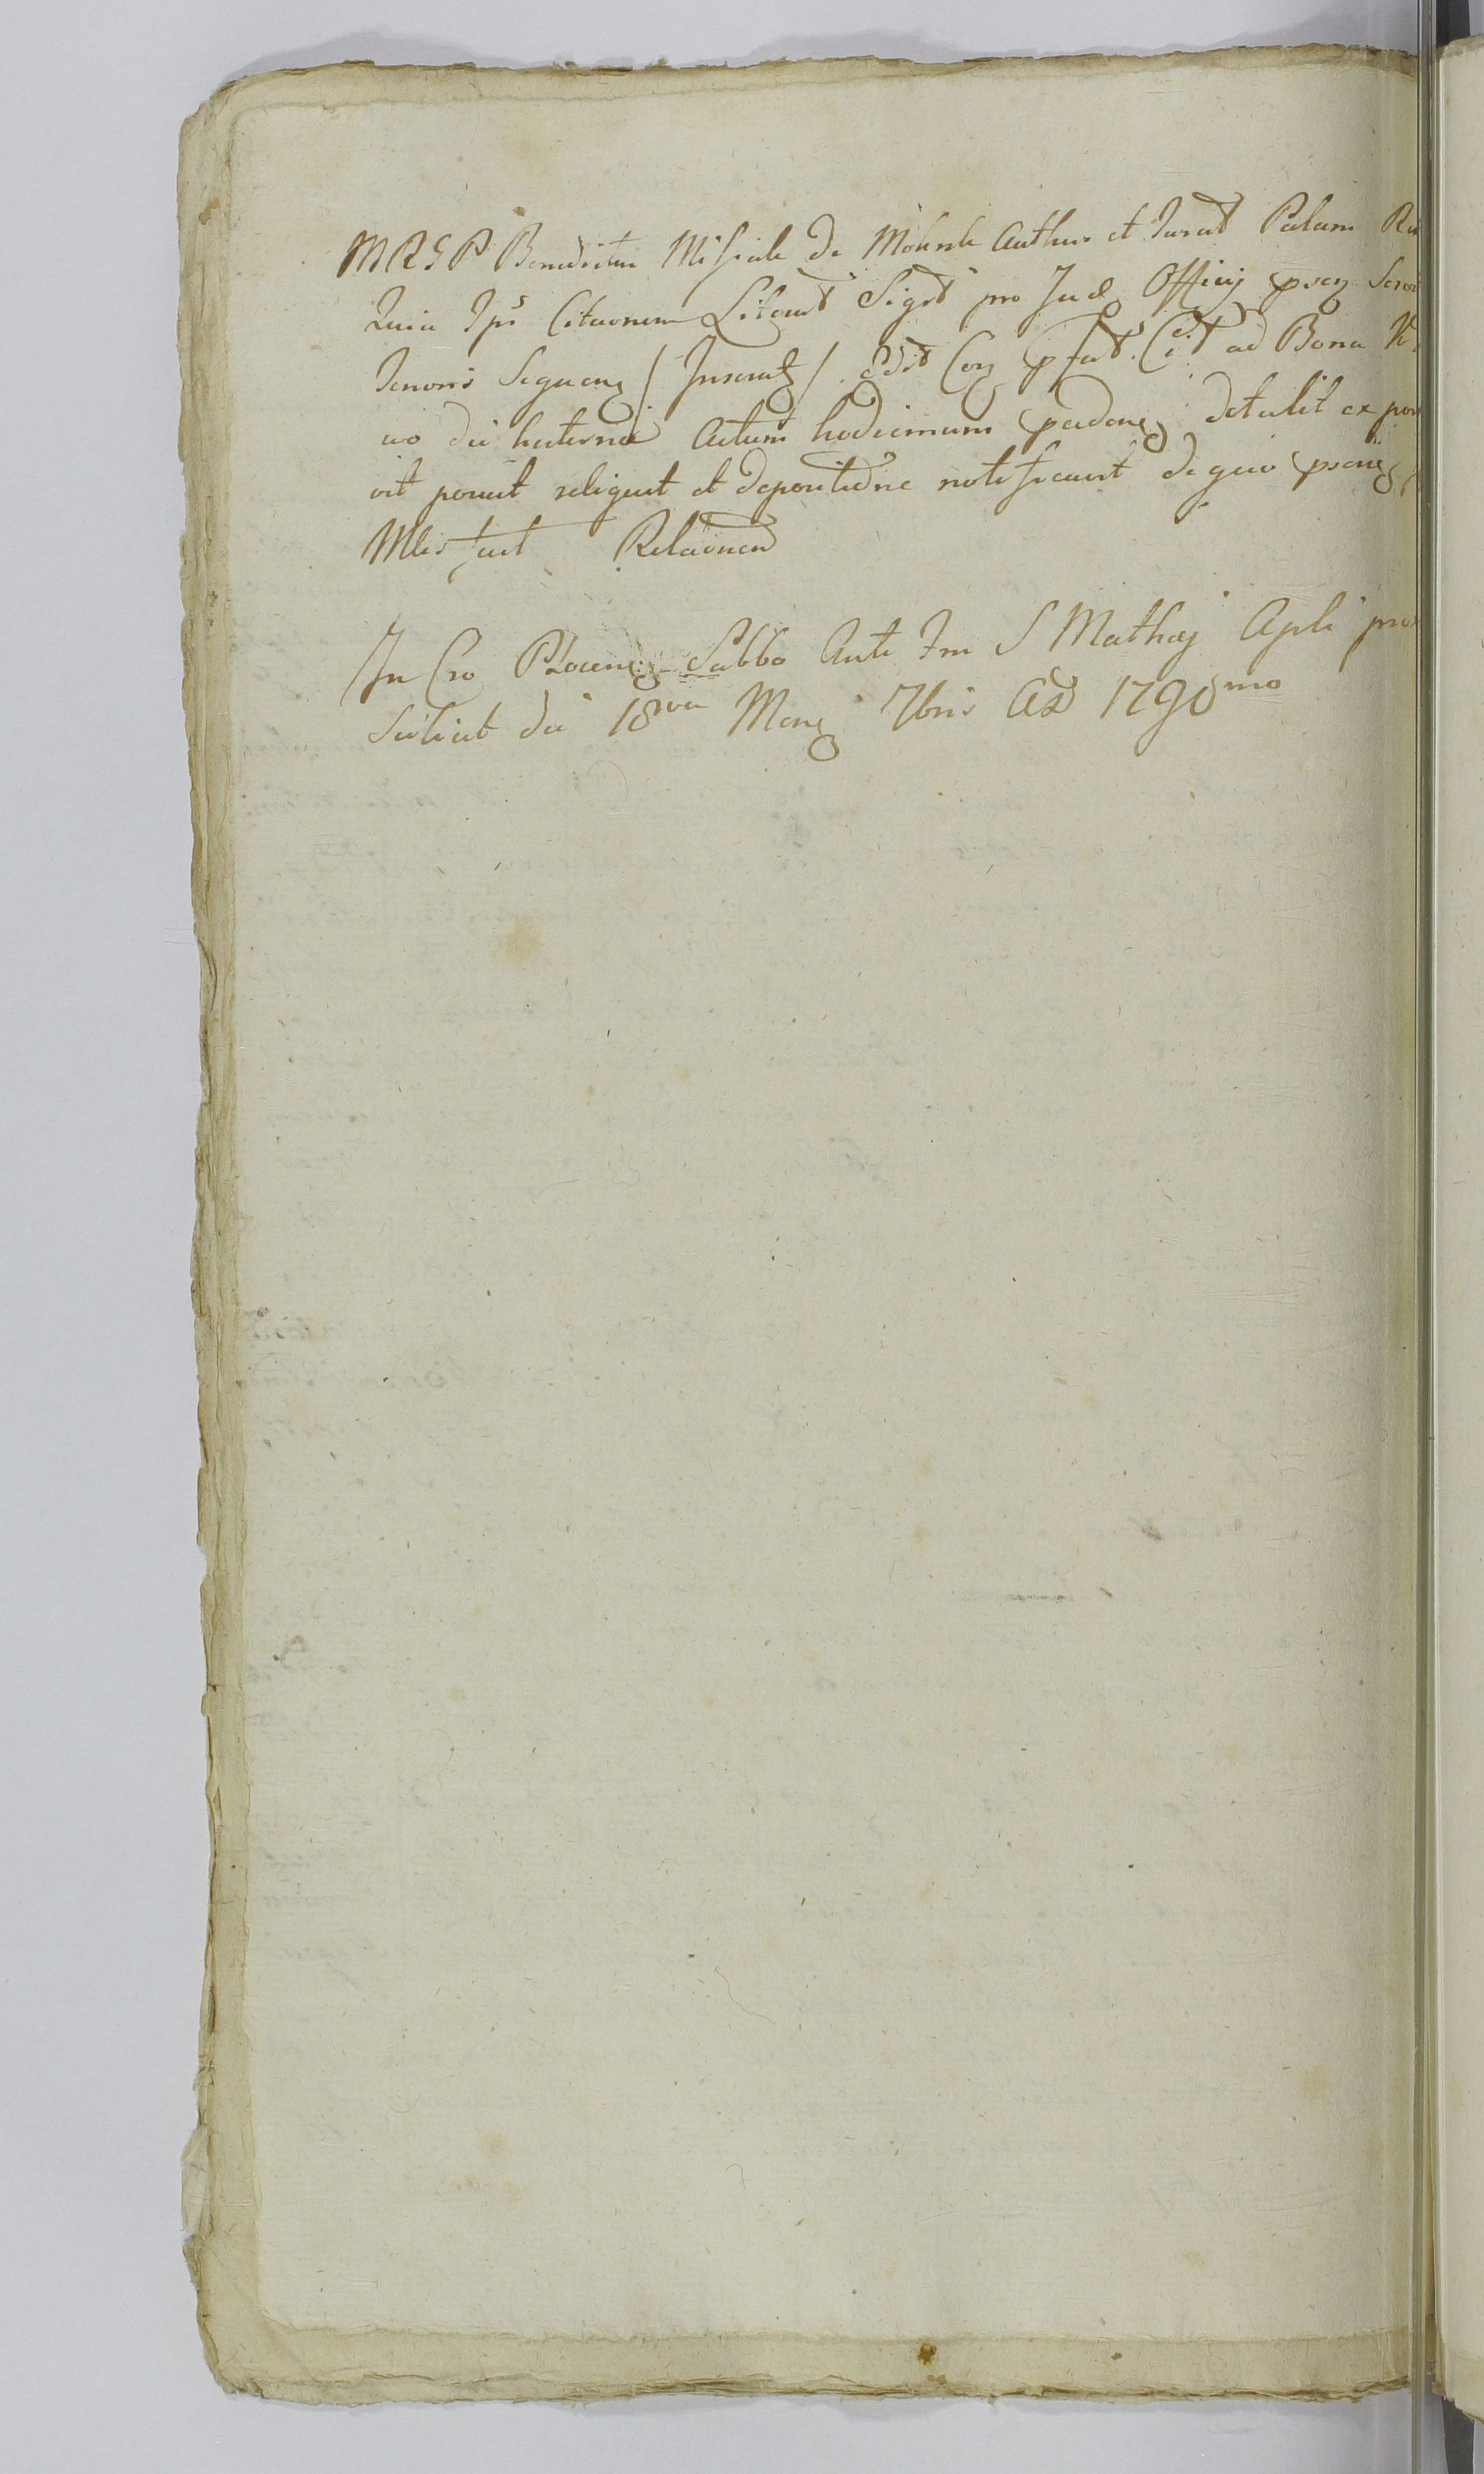 MRGP Benedictus Misiak de Mokrsk Authus et Jurat Palam
Quia Ips Citaonem Literat Sigt pro Jud Officij psen
Tenoris Sequens / Inserat / Edit Cop pfat Cit ad Bona
uo die hesterna Actum hodiernum pcedens detulit expo
vit posuit reliquit et depositione notificavit de quo psens
Mlis fcit Relaonem
In Cro Plocens Sabbo Ante Fm S Mathaj Apli pro
Sciliat die 18va Mens 7bris AD 1790mo